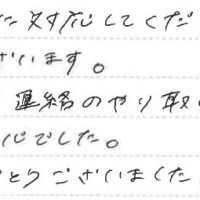 に対応してくだ
ざいます。
連絡のやり取
心でした。
とうございました